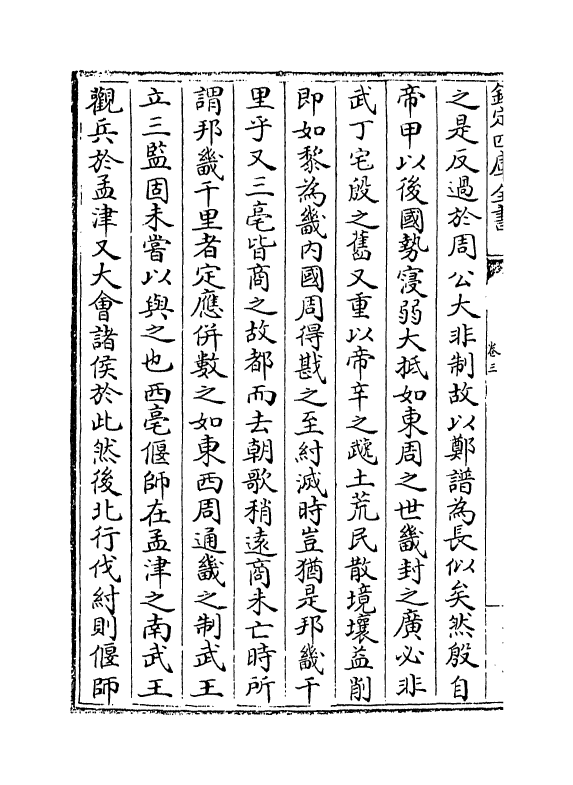 欽定四庫全書
卷三
之是反過於周公大非制故以鄭譜為長似矣然殷自
帝甲以後國勢寖弱大抵如東周之世畿封之廣必非
武丁宅殷之舊又重以帝辛之虣土荒民散境壤益削
即如黎為畿内國周得戡之至紂滅時豈猶是邦畿千
里乎又三亳皆商之故都而去朝歌稍遠商未亡時所
謂邦畿千里者定應併數之如東西周通畿之制武王
立三監固未嘗以與之也西亳偃師在孟津之南武王
觀兵於孟津又大會諸侯於此然後北行伐紂則偃師